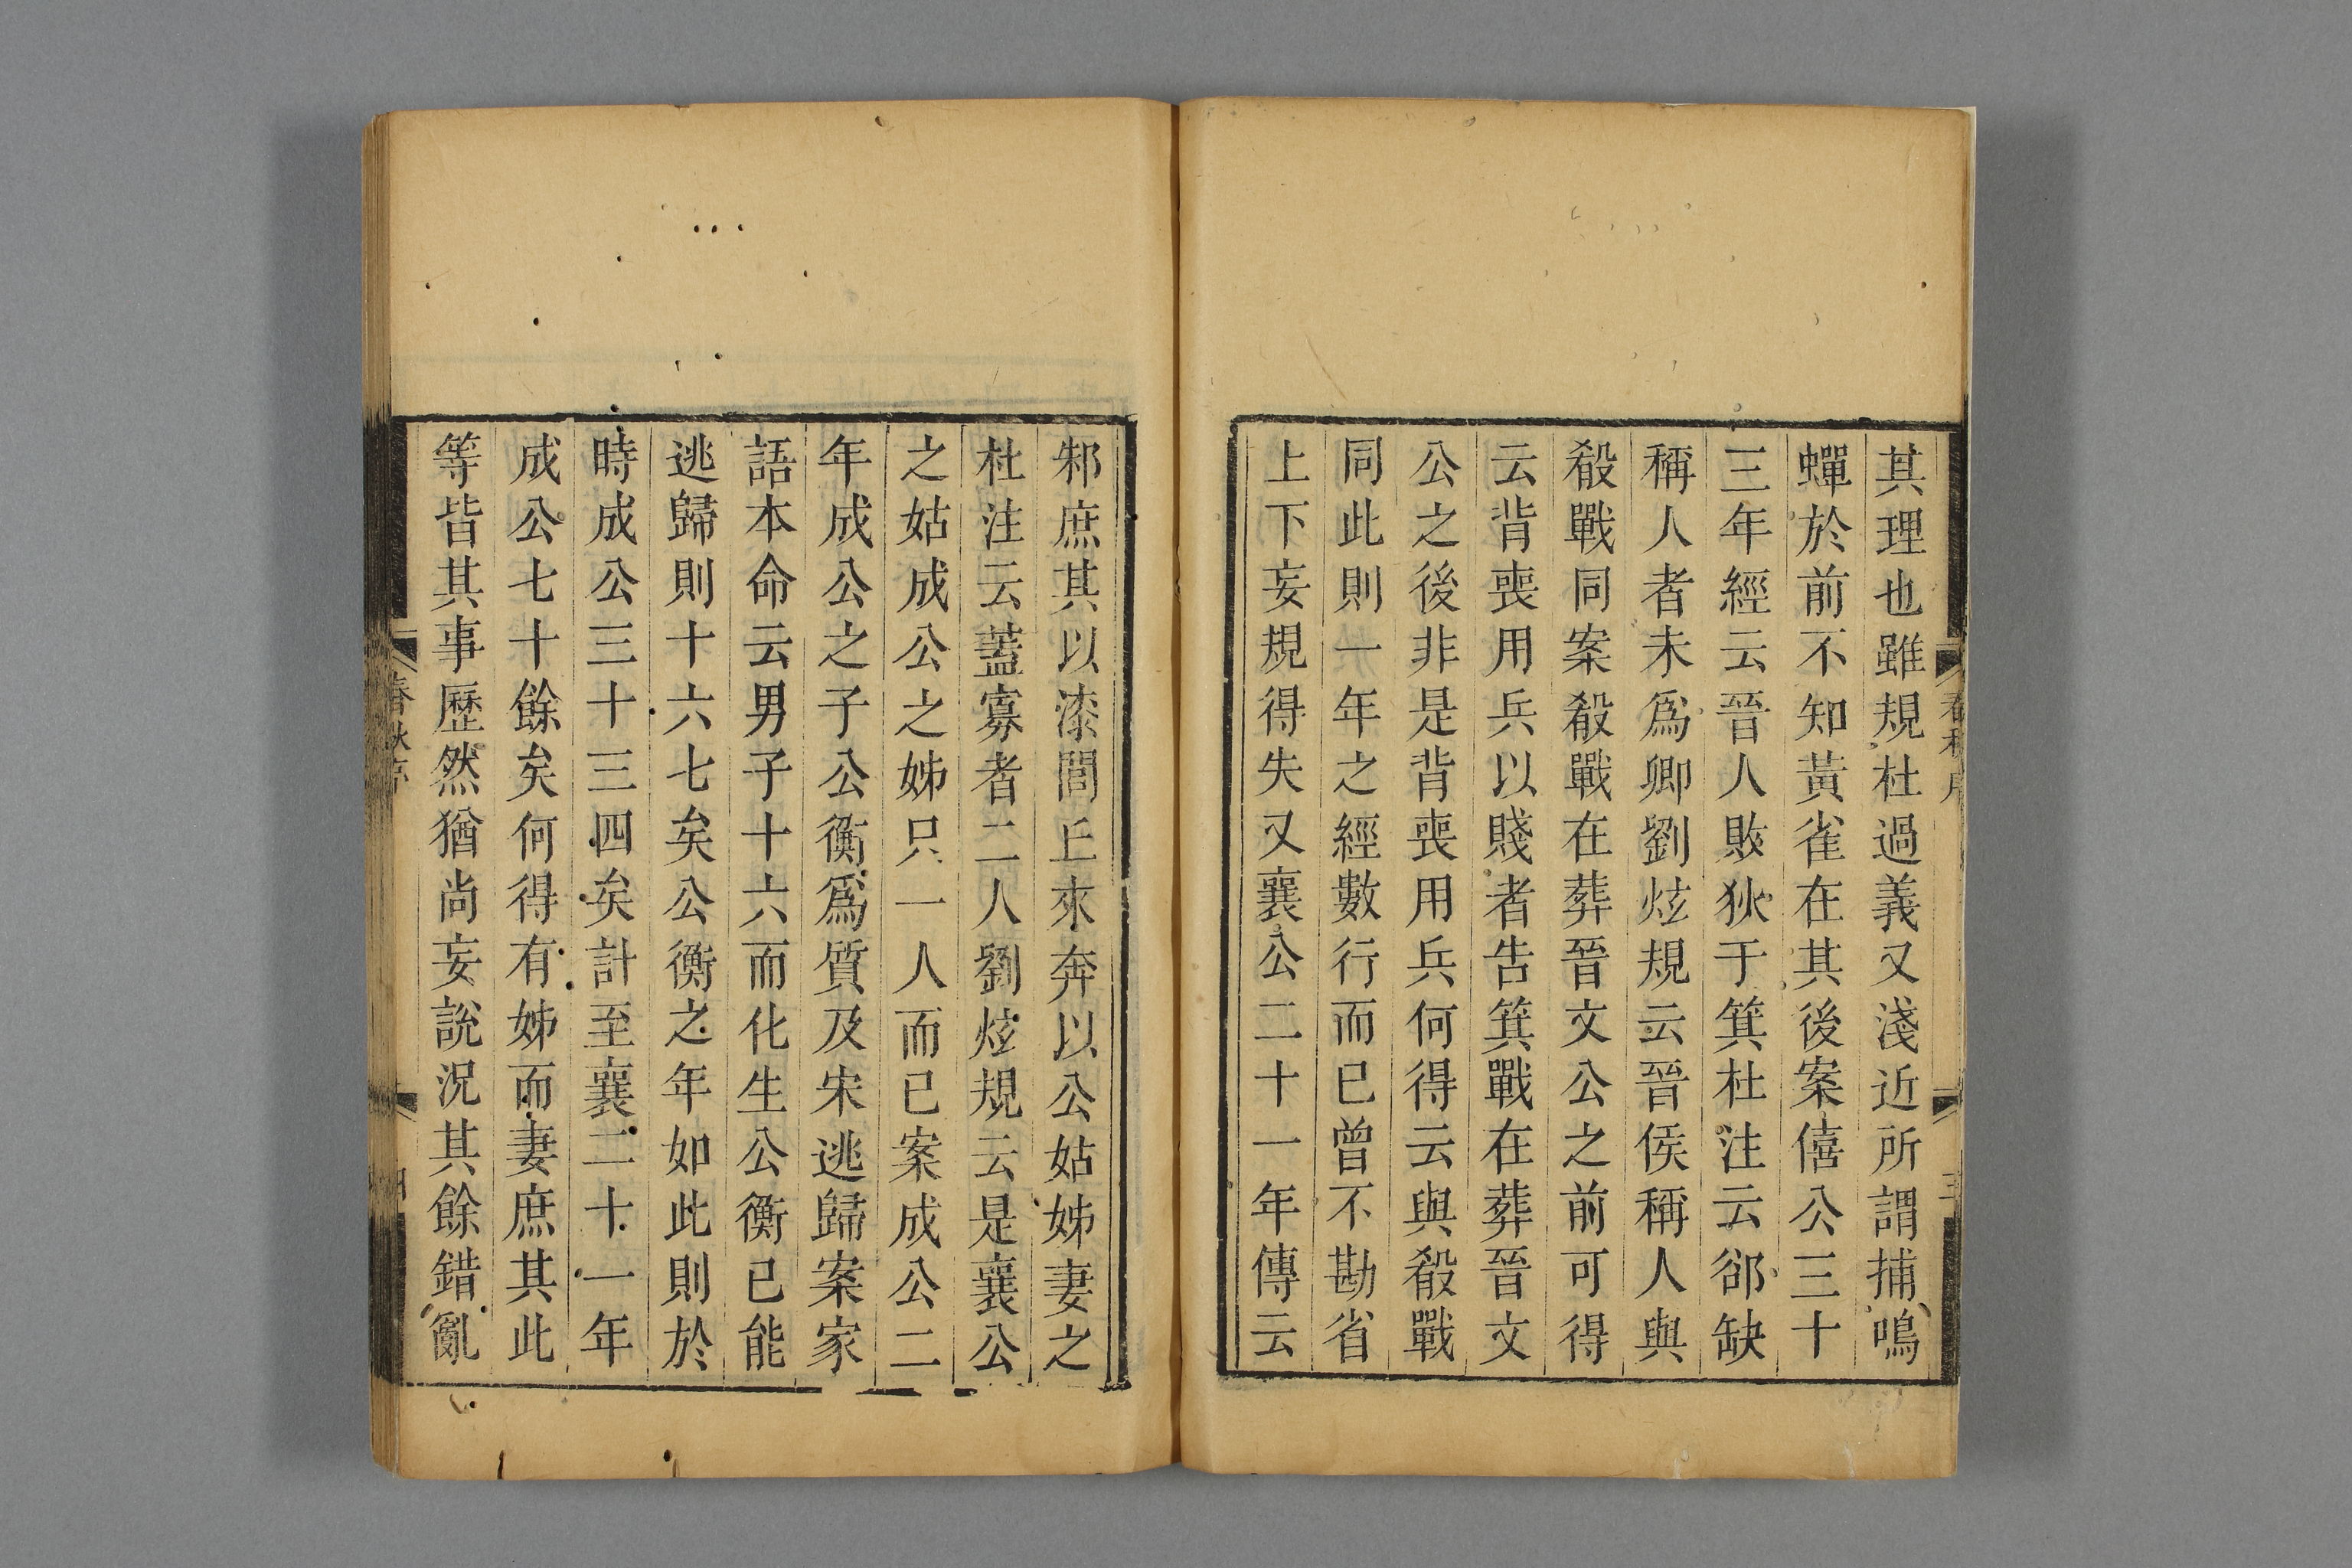 其理也雖規杜過義又淺近所謂捕鳴
蟬於前不知黃雀在其後案僖公三十
三年經云晉人敗狄于箕杜注云郤缺
稱人者未爲卿劉炫規云晉侯稱人與
殽戰同案殽戰在葬晉文公之前可得
云背喪用兵以賤者告箕戰在葬晉文
公之後非是背喪用兵何得云與殽戰
同此則一年之經數行而已曾不勘省
上下妄規得失又襄公二十一年傳云
邾庶其以漆閭丘來奔以公姑姊妻之
杜注云蓋寡者二人劉炫規云是襄公
之姑成公之姊只一人而已案成公二
年成公之子公衡爲質及宋逃歸案家
語本命云男子十六而化生公衡已能
逃歸則十六七矣公衡之年如此則於
時成公三十三四矣計至襄二十一年
成公七十餘矣何得有姊而妻庶其此
等皆其事歷然猶尚妄說況其餘錯亂